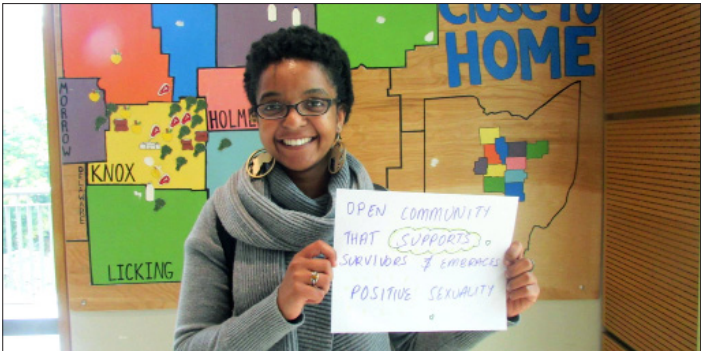 CLOSE TO
HOME
MORROW
HOLME
KNOX
LICKING
OPEN COMMUNITY
THAT SUPPORTS
SURVIVORS & EMBRACES
POSITIVE SEXUALITY